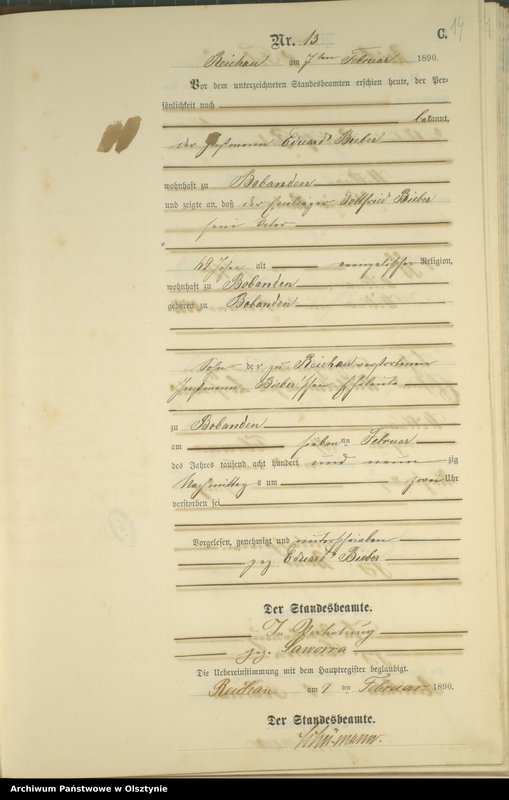 C. 14
Nr. 13
Reichau am 7ten Februar 1890.
Vor dem unterzeichneten Standesbeamten erschien heute, der Per-
sönlichkeit nach
bekannt,
der Eduard Bieber
wohnhaft zu Bobanden
und zeigte an, daß der Gottfried Bieber
sein Vater
49 Jahre alt evangelischer Religion,
wohnhaft zu Bobanden
geboren zu Bobanden
Sohn der zu Reichau verstorbenen
Bieber'schen Eheleute
zu Bobanden
am sieben ten Februar
des Jahres tausend acht hundert und neun zig
Nachmittag s um zwei Uhr
verstorben sei
Vorgelesen, genehmigt und unterschrieben
gez. Eduard Bieber
Der Standesbeamte.
In Vertretung
gez. Saworra
Die Uebereinstimmung mit dem Hauptregister beglaubigt.
Reichau am 7 ten Februar 1890.
Der Standesbeamte.
Archiwum Państwowe w Olsztynie